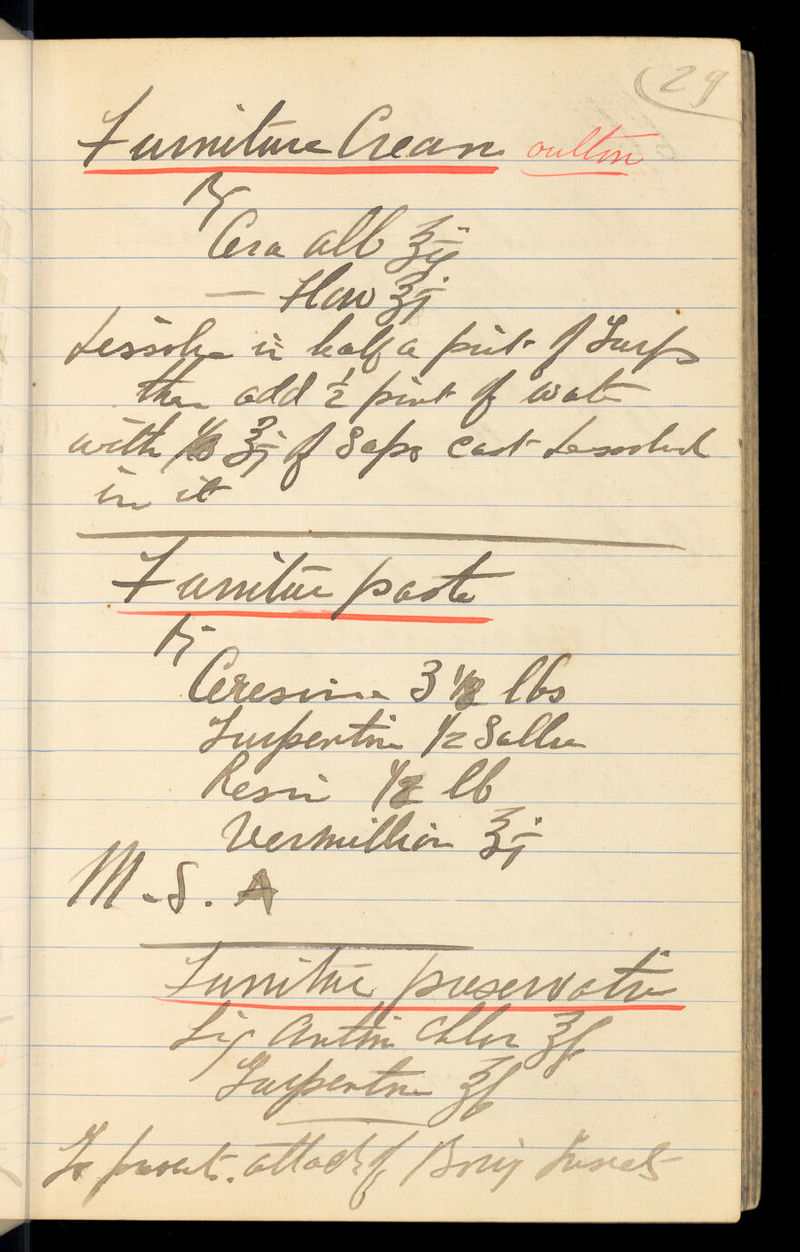 29
Furniture Cream oulton
℞
Cera alb ℥ij
— Flav ℥j
Dissolve in half a pint of Turps
then add ½ pint of water
with ℥j of Sapo Cast dissolved
in it
Furniture paste
℞
Ceresine 3 ½ lbs
Turpentine 1/2 Gallon
Resin ½ lb
Vermillion ℥j
M.S.A
Furniture preservative
Liq Antim Chlor ℥f
Turpentine ℥f
To prevent attack of Boring Insects